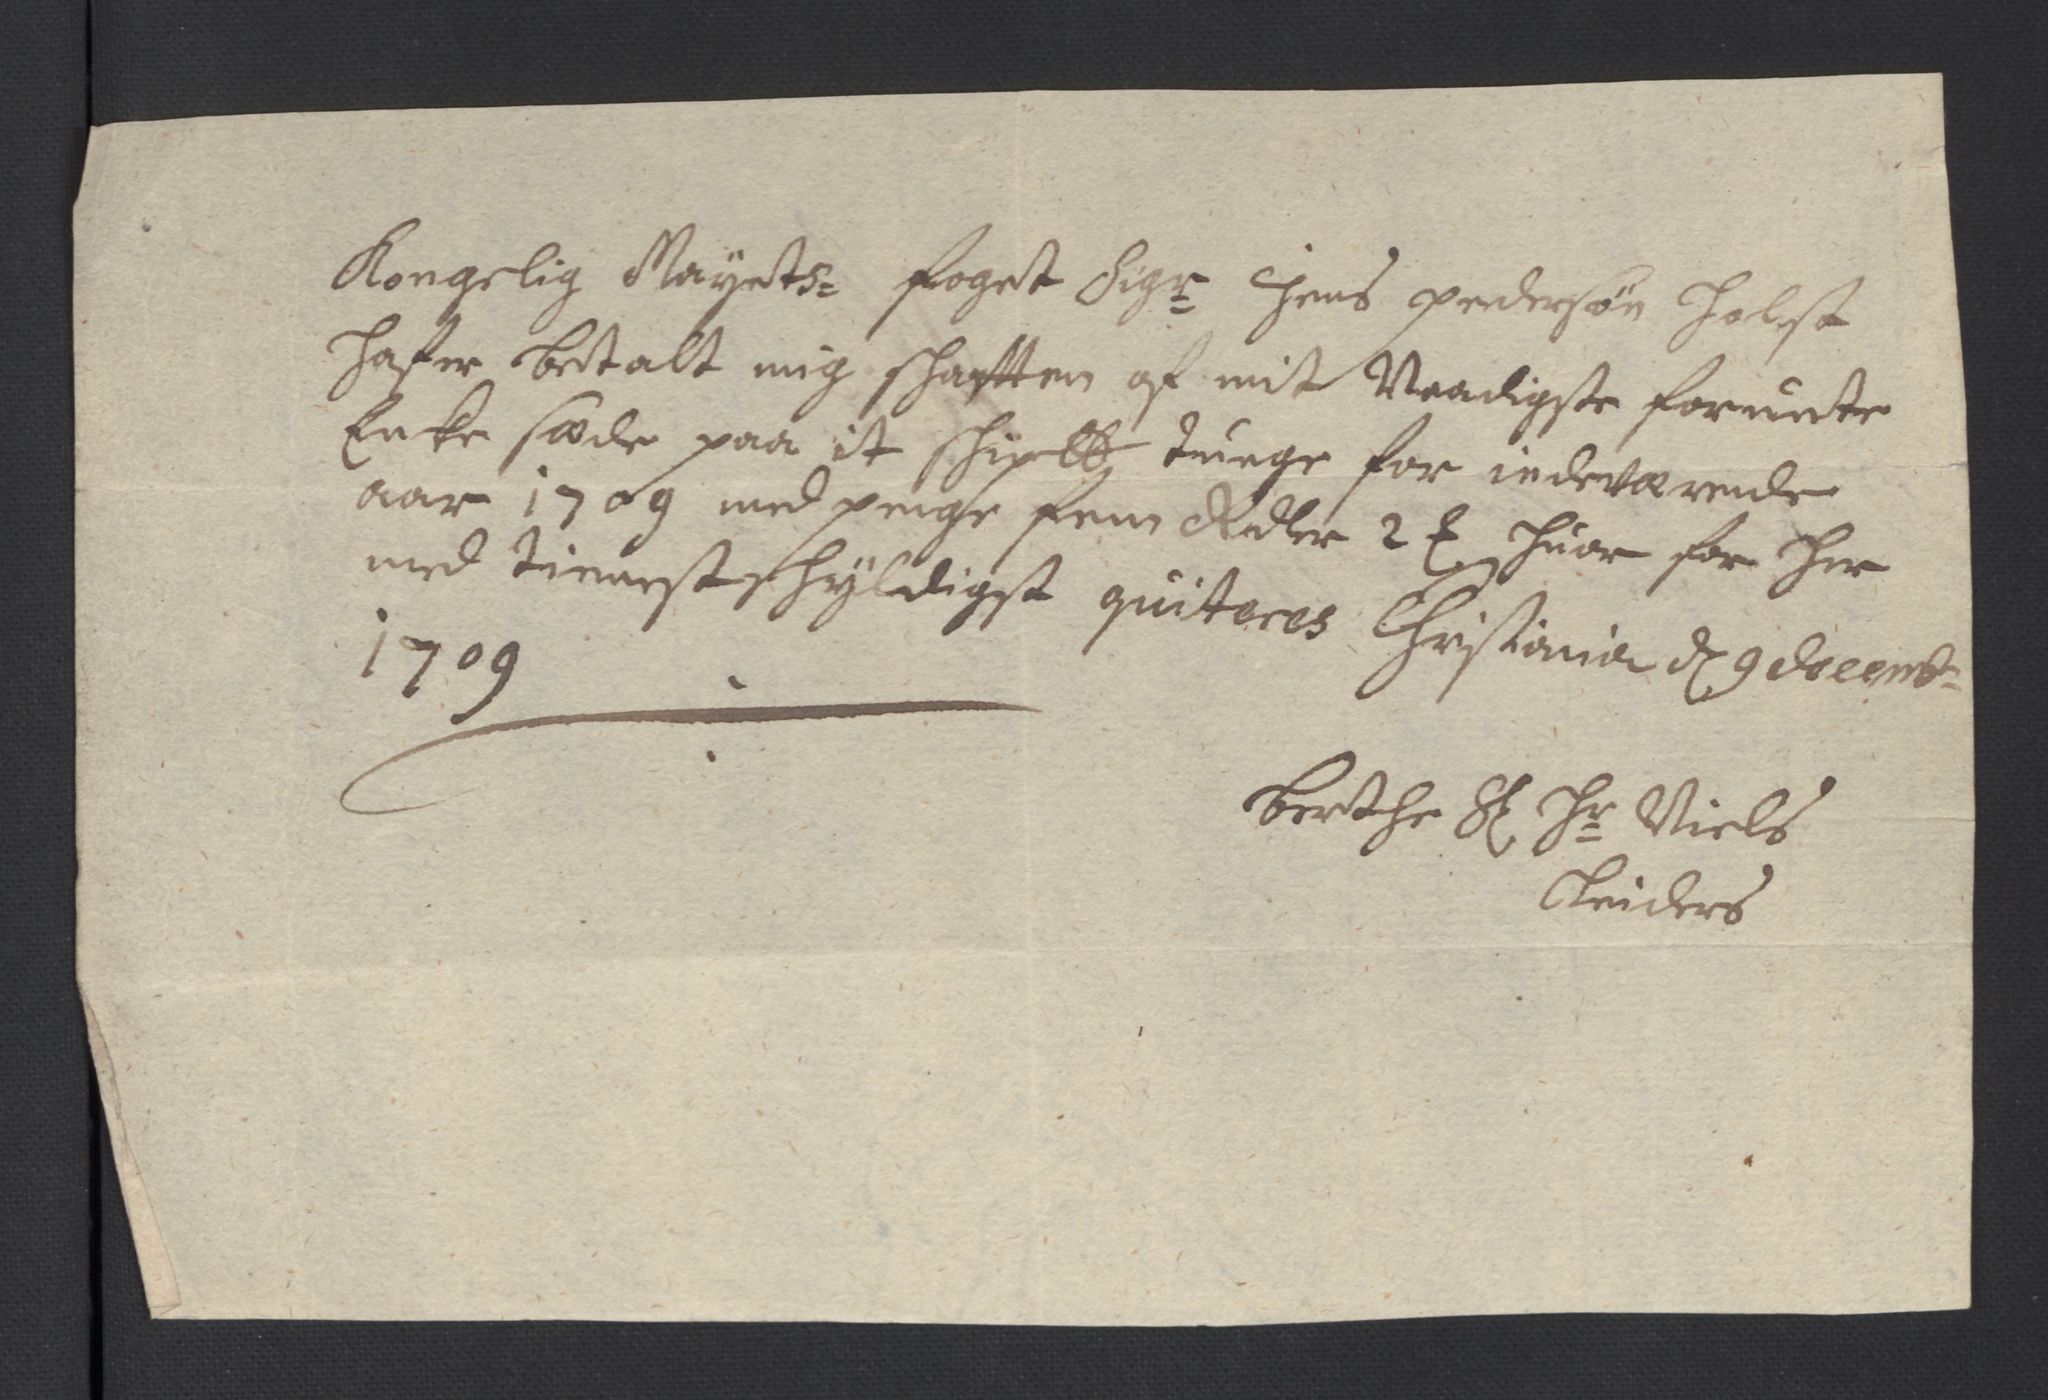 Kongelig Mayets: foget Sigr Jens pedersøn Holst
hafer betalt mig schatten af mit Naadigste forunte
Enke sæde paa it schip℔ tunge for indeværende
aar 1709 med penge fem Rdler 2 huor for her
med tienestschyldigst quiteres Christiania d 9 decemb:
1709
Berthe Sl Hr Niels
Leiders